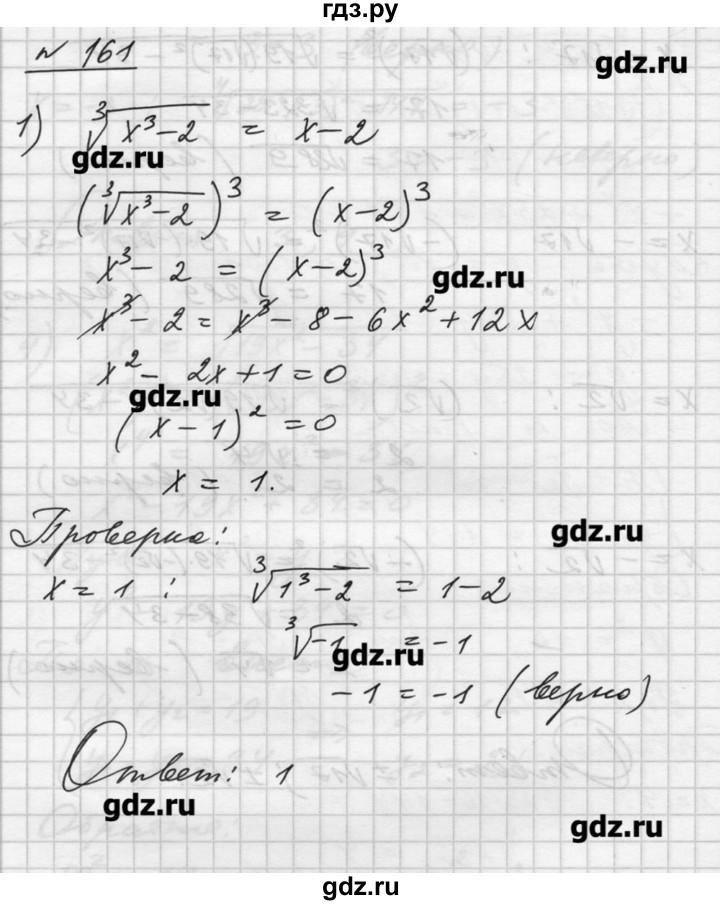 гдз.ру
№ 161
gdz.ru
1) ∛(x³-2) = x-2
gdz.ru
(∛(x³-2))³ = (x-2)³
x³-2 = (x-2)³
gdz.ru
x³-2 = x³-8-6x²+12x
x²-2x+1=0
gdz.ru
(x-1)²=0
x = 1.
gdz.ru
Проверка:
x=1: ∛(1³-2) = 1-2
∛-1 = -1
gdz.ru
-1=-1 (верно)
Ответ: 1
gdz.ru
gdz.ru
gdz.ru